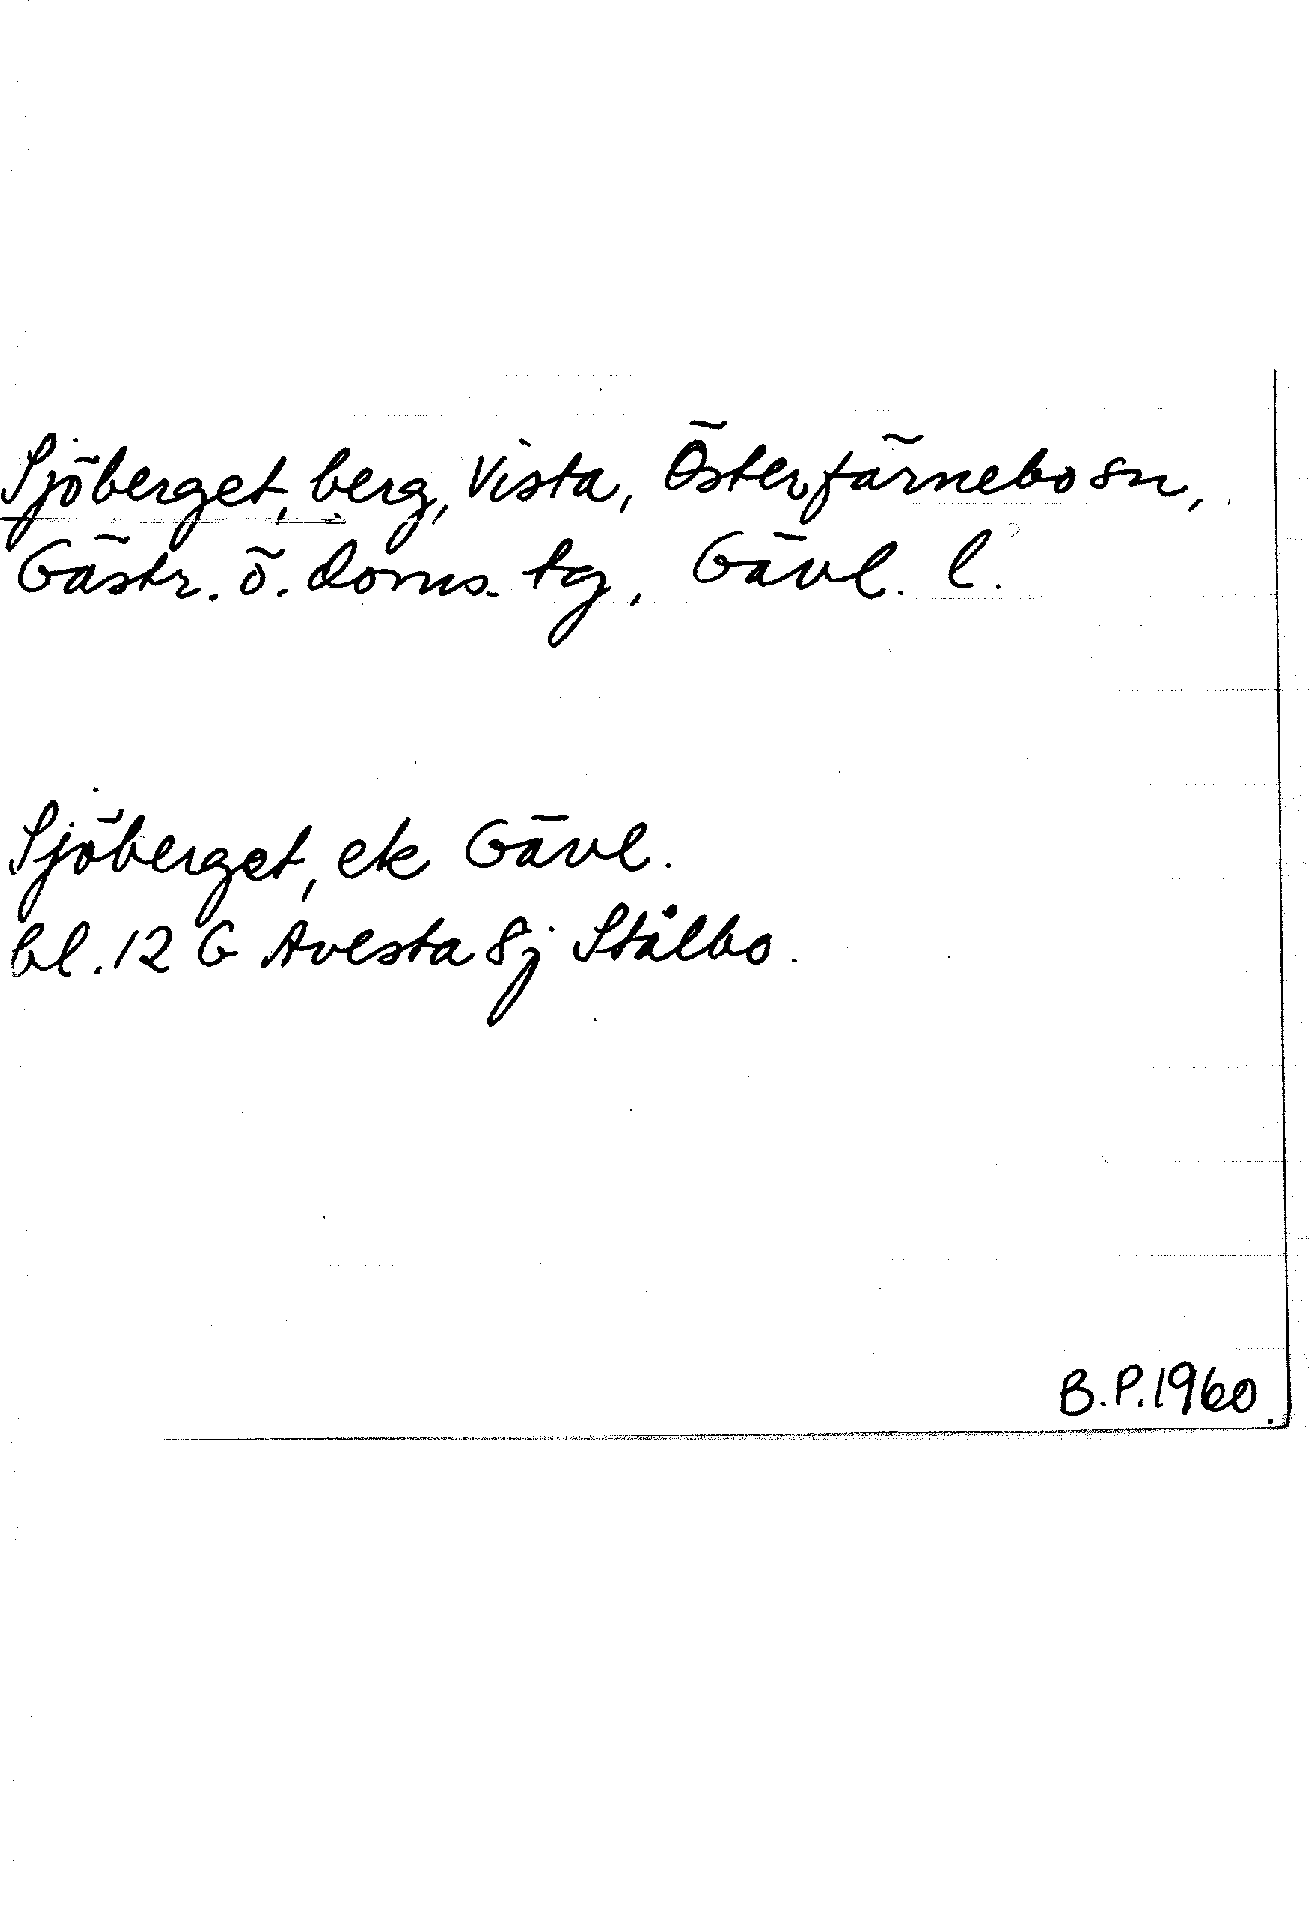 Sjöberget, berg, Vista, Österfärnebo sn,
Gästr. ö. doms. tg, Gävl. l.
Sjöberget, ek Gävl.
bl. 12 G Avesta 8j Stålbo.
B.P. 1960.